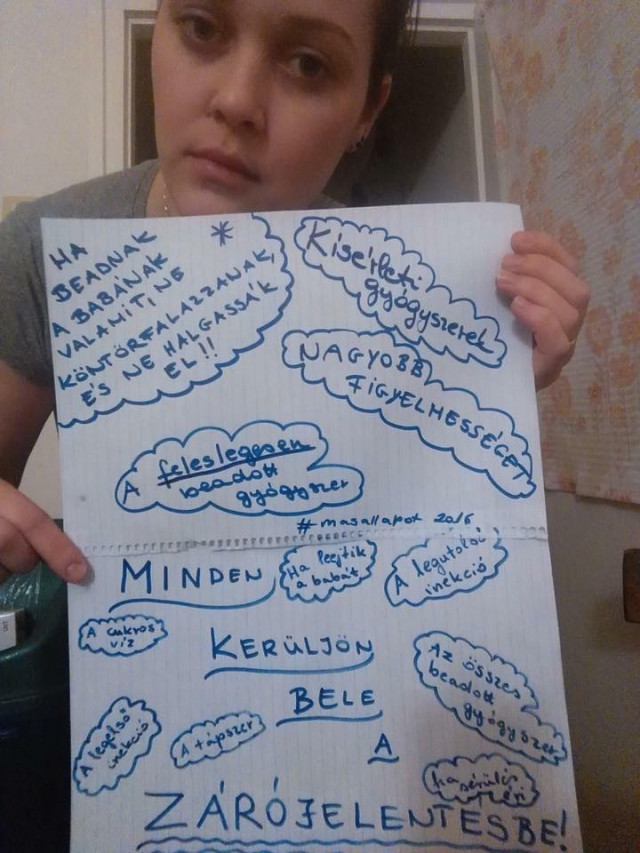 HA
BEADNAK
A BABÁNAK
VALAMIT NE
KÖNTÖRFALAZZANAK,
ÉS NE HALGASSÁK
EL!!
*
Kísérleti
gyógyszerek
NAGYOBB
FIGYELMESSÉGET
A feleslegesen
beadott
gyógyszer
#masallapot 2016
MINDEN
Ha leejtik
a babát
A legutolsó
inekció
A cukros
víz
KERÜLJÖN
Az összes
beadott
gyógyszer
BELE
A legelső
inekció
A tápszer
A
ha sérülés
éri
ZÁRÓJELENTÉSBE!